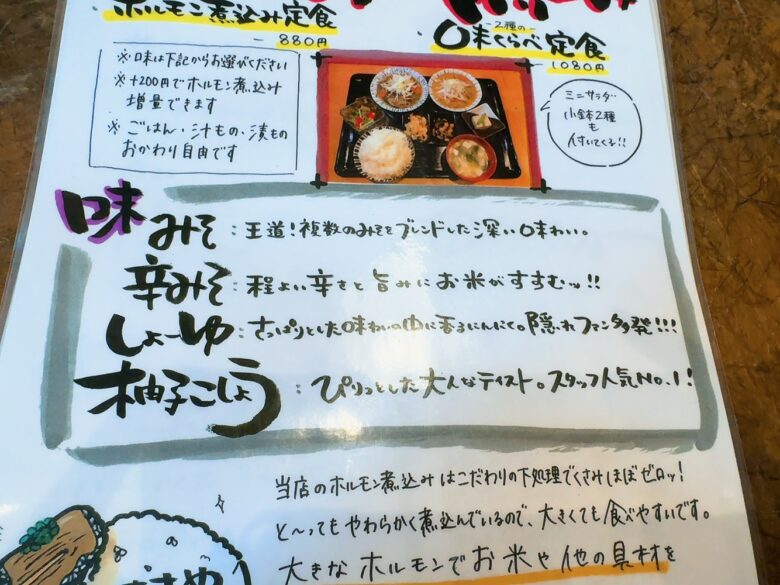 ホルモン煮込み定食
880円
-2種の-
味くらべ定食
1080円
※味は下記からお選びください
※+200円でホルモン煮込み
増量できます
※ごはん・汁もの・漬もの
おかわり自由です
ミニサラダ
小鉢2種
も
付いてくる!!
味
みそ:王道!複数のみそをブレンドした深い味わい。
辛みそ:程よい辛さと旨みにお米がすすむッ!!
しょーゆ:さっぱりとした味わいの中に香るにんにく。隠れファン多発!!!
柚子こしょう:ぴりっとした大人なテイスト。スタッフ人気No.1!
当店のホルモン煮込みはこだわりの下処理でくさみほぼゼロッ!
と〜ってもやわらかく煮込んでいるので、大きくても食べやすいです。
大きなホルモンでお米や他の具材を